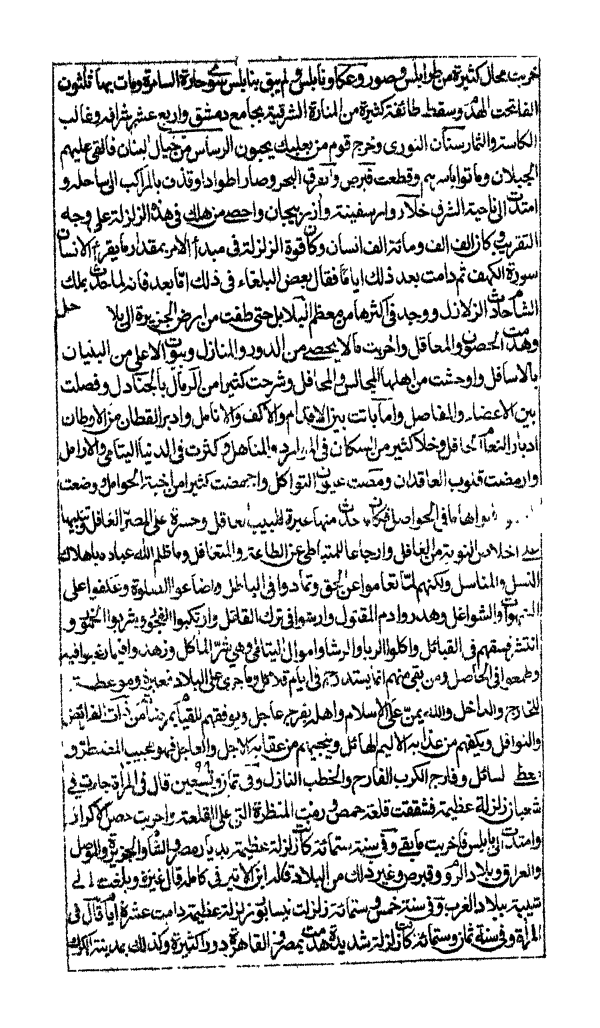 خربت محال كثيرة من طرابلس وصور وعكا ونابلس ولم يبق بنابلس سوى حارة السامرة ومات بها ثلثون
الفا تحت الهدم وسقط طائفة كثيرة من المنارة الشرقية بجامع دمشق واربع عشر شرافه وغالب
الكلاسة والمارستان النورى وخرج قوم من بعلبك يجبون الريباس من جبال لبنان فالتقى عليهم
الجبلان وماتوا باسرهم وقطعت قبرص وانفرق البحر وصار اطوادا وقذف بالمراكب الى ساحله و
امتدت الى ناحية الشرق خلاط وارمينية واذربيجان واحصى من هلك فى هذه الزلزلة على وجه
التقريب وكان الف الف ومائة الف انسان وكان قوة الزلزلة فى مبدأ الامر بمقدار ما يقرأ الانسان
سورة الكهف ثم دامت بعد ذلك اياما فقال بعض البلغاء فى ذلك اما بعد فانه لما حدث بملك
الشام حادث الزلازل ووجد فى اكثرها من معظم البلابل حتى طفت من ارض الجزيرة الى بلا
وهدمت الحصون والمعاقل واخربت ما لا يحصى من الدور والمنازل وبنوت الاعلى من البنيان
بالاسافل واوحشت من اهلها المجالس والمحافل وشرحت كثيرا من الرمال بالجنادل وفصلت
بين الاعضاء والمفاصل واما باتت بين الاقدام والاكف والانامل وادبر القطان من الاوطان
ادبار النعام الجافل وخلا كثير من السكان فى الموارد والمناهل وكثرت فى الدنيا اليتامى والارامل
وارمضت قلوب العاقدان ومضت عيون الثواكل واجهضت كثيرا من اخبية الحوامل ووضعت
ما فى الحواصل فكان حدث منها عبرة للبيب العاقل وحسرة على المصر الغافل وتنبيها
على اخلاص التوبة من الغافل وارجاعا للمتباطى عن الطاعة والمتغافل وما ظلم الله عباده باهلاك
النسل والمناسل ولكنهم لما تعاموا عن الحق وتمادوا فى الباطل واضاعوا الصلوة وعكفوا على
الشهوات والشواغل وهدروا دم المقتول وارشوا فى ترك القاتل وارتكبوا الفجور وشربوا الخمور و
انتشر فسقهم فى القبائل واكلوا الربا والرشا واموال اليتامى وهى شر المآكل وزهدوا فيما رغبوا فيه
وطمعوا فى الحاصل ومن بقى منهم انما يستدرج فى ايام قلائل وما جرى على البلاد تعبرة وموعظة
للخارج والداخل والله يمن على الاسلام واهله بفرج عاجل ويوفقهم للقيام بمرضاته من ذات الفرائض
والنوافل ويكفهم من عذابه الاليم الهائل وينجيهم من عقابه الاجل والعاجل فهو مجيب المضطر و
معطى السائل وفارج الكرب الفادح والخطب النازل وفى ثمان وتسعين قال فى المرآة جاءت فى
شعبان زلزلة عظيمة فشققت قلعة حمص ورمت المنظرة التى على القلعة واخربت حصن الاكراد
وامتدت الى نابلس فاخربت ما بقى وفى سنة ستمائة كانت زلزلة عظيمة بديار مصر والشام والجزيرة والموصل
والعراق وبلاد الروم وقبرص وغير ذلك من البلاد قاله ابن الاثير فى كامله قال غيره وبلغت الى
سبتة ببلاد الغرب وفى سنة خمس وستمائة زلزلت نيسابور زلزلة عظيمة دامت عشرة ايام قال فى
المرآة وفى سنة ثمان وستمائة كانت زلزلة شديدة هدمت بمصر والقاهرة دورا كثيرة وكذلك بمدينة الكرك